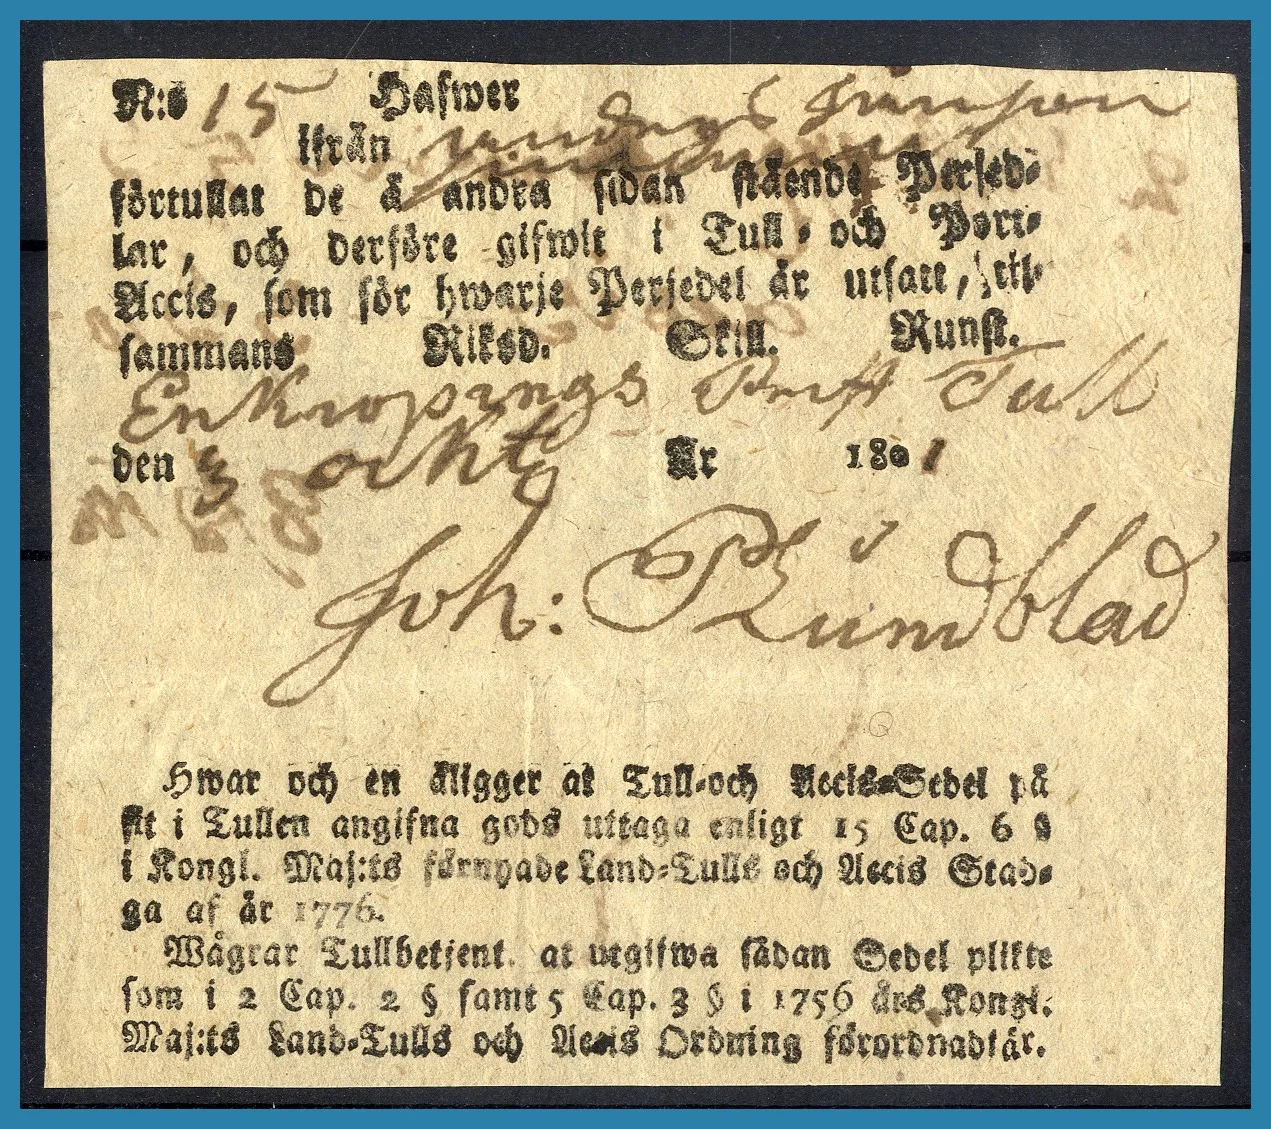 N:o 15 Hafwer
ifrån
förtullat de å andra sidan stående Persed-
lar, och derföre gifwit i Tull- och Port-
Accis, som för hwarje Persedel är utsatt, til-
sammans Riksd. Skill. Runst.
Enkiöpings Tull
den 3 ockt År 1801
Joh: Rundblad
Hwar och en åligger at Tull-och Accis-Sedel på
sit i Tullen angifna gods uttaga enligt 15 Cap. 6 §
i Kongl. Maj:ts förnyade Land-Tulls och Accis Stad-
ga af år 1776.
Wägrar Tullbetjent at utgifwa sådan Sedel plikte
som i 2 Cap. 2 § samt 5 Cap. 3 § i 1756 års Kongl.
Maj:ts Land-Tulls och Accis Ordning förordnadt är.